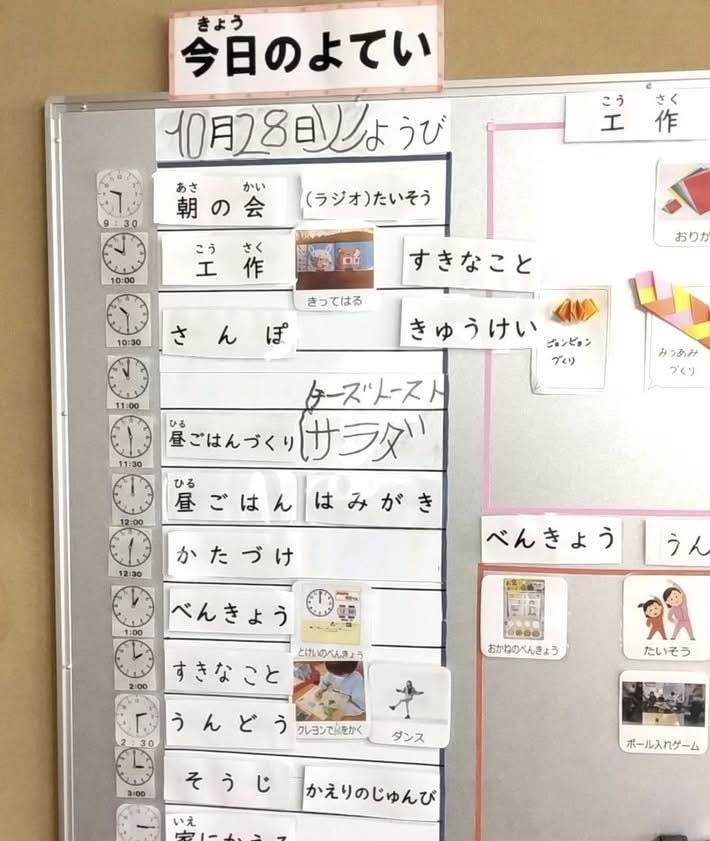 きょう
今日のよてい
10月28日火ようび
9:30
あさ かい
朝の会
(ラジオ)たいそう
10:00
こう さく
工作
きってはる
すきなこと
10:30
さんぽ
きゅうけい
11:00
チーズトースト
11:30
ひる
昼ごはんづくり
サラダ
12:00
ひる
昼ごはん
はみがき
12:30
かたづけ
1:00
べんきょう
とけいのべんきょう
2:00
すきなこと
クレヨンで
をかく
2:30
うんどう
ダンス
3:00
そうじ
かえりのじゅんび
いえ
家にかえる
こう さく
工作
おりが
ピョンピョン
づくり
みつあみ
づくり
べんきょう
うん
おかねのべんきょう
たいそう
ボール入れゲーム